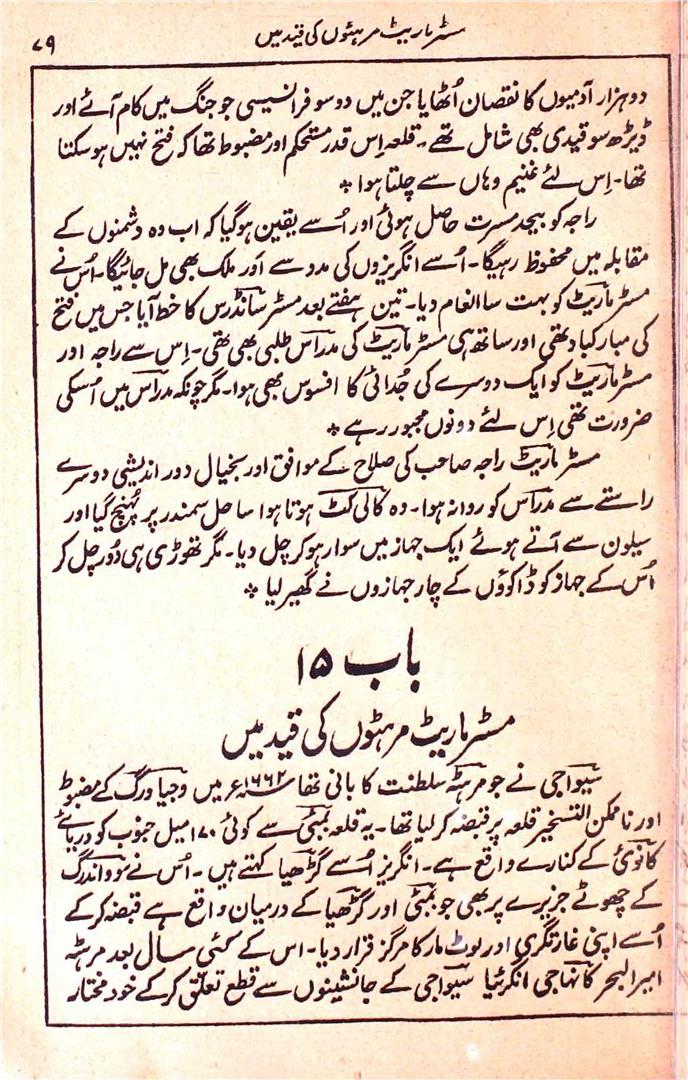 مسٹر ماریٹ مرہٹوں کی قید میں
۷۹
دو ہزار آدمیوں کا نقصان اُٹھایا جن میں دو سو فرانسیسی جو جنگ میں کام آئے اور
ڈیڑھ سو قیدی بھی شامل تھے۔ قلعہ اِس قدر مستحکم اور مضبوط تھا کہ فتح نہیں ہو سکتا
تھا۔ اِس لئے غنیم وہاں سے چلتا ہوا *
راجہ کو بیحد مسرت حاصل ہوئی اور اُسے یقین ہوگیا کہ اب وہ دشمنوں کے
مقابلہ میں محفوظ رہیگا۔ اُسے انگریزوں کی مدد سے اَور ملک بھی مل جائیگا۔ اُس نے
مسٹر ماریٹ کو بہت سا انعام دیا۔ تین ہفتے بعد مسٹر سانڈرس کا خط آیا جس میں فتح
کی مبارکباد تھی اور ساتھ ہی مسٹر ماریٹ کی مدراس طلبی بھی تھی۔ اِس سے راجہ اور
مسٹر ماریٹ کو ایک دوسرے کی جُدائی کا افسوس بھی ہوا۔ مگر چونکہ مدراس میں اُسکی
ضرورت تھی اِس لئے دونوں مجبور رہے *
مسٹر ماریٹ راجہ صاحب کی صلاح کے موافق اور بخیال دور اندیشی دوسرے
راستے سے مدراس کو روانہ ہوا۔ وہ کالی کٹ ہوتا ہوا ساحل سمندر پر پُہنچ گیا اور
سیلون سے آتے ہوئے ایک جہاز میں سوار ہو کر چل دیا۔ مگر تھوڑی ہی دُور چل کر
اُس کے جہاز کو ڈاکوؤں کے چار جہازوں نے گھیر لیا *
باب ۱۵
مسٹر ماریٹ مرہٹوں کی قید میں
سیواجی نے جو مرہٹہ سلطنت کا بانی تھا ۱۶۶۲ء میں وجیا ورگ کے مضبوط
اور ناممکن التسخیر قلعہ پر قبضہ کر لیا تھا۔ یہ قلعہ بمبئی سے کوئی ۱۷۰ میل جنوب کو دریائے
کانوئی کے کنارے واقع ہے۔ انگریز اُسے گڑھیا کہتے ہیں۔ اُس نے سوواندرگ
کے چھوٹے جزیرے پر بھی جو بمبئی اور گڑھیا کے درمیان واقع ہے قبضہ کرکے
اُسے اپنی غارتگری اور لوٹ مار کا مرکز قرار دیا۔ اس کے کئی سال بعد مرہٹہ
امیر البحر کانہاجی انگرئیا سیواجی کے جانشینوں سے قطع تعلق کرکے خود مختار